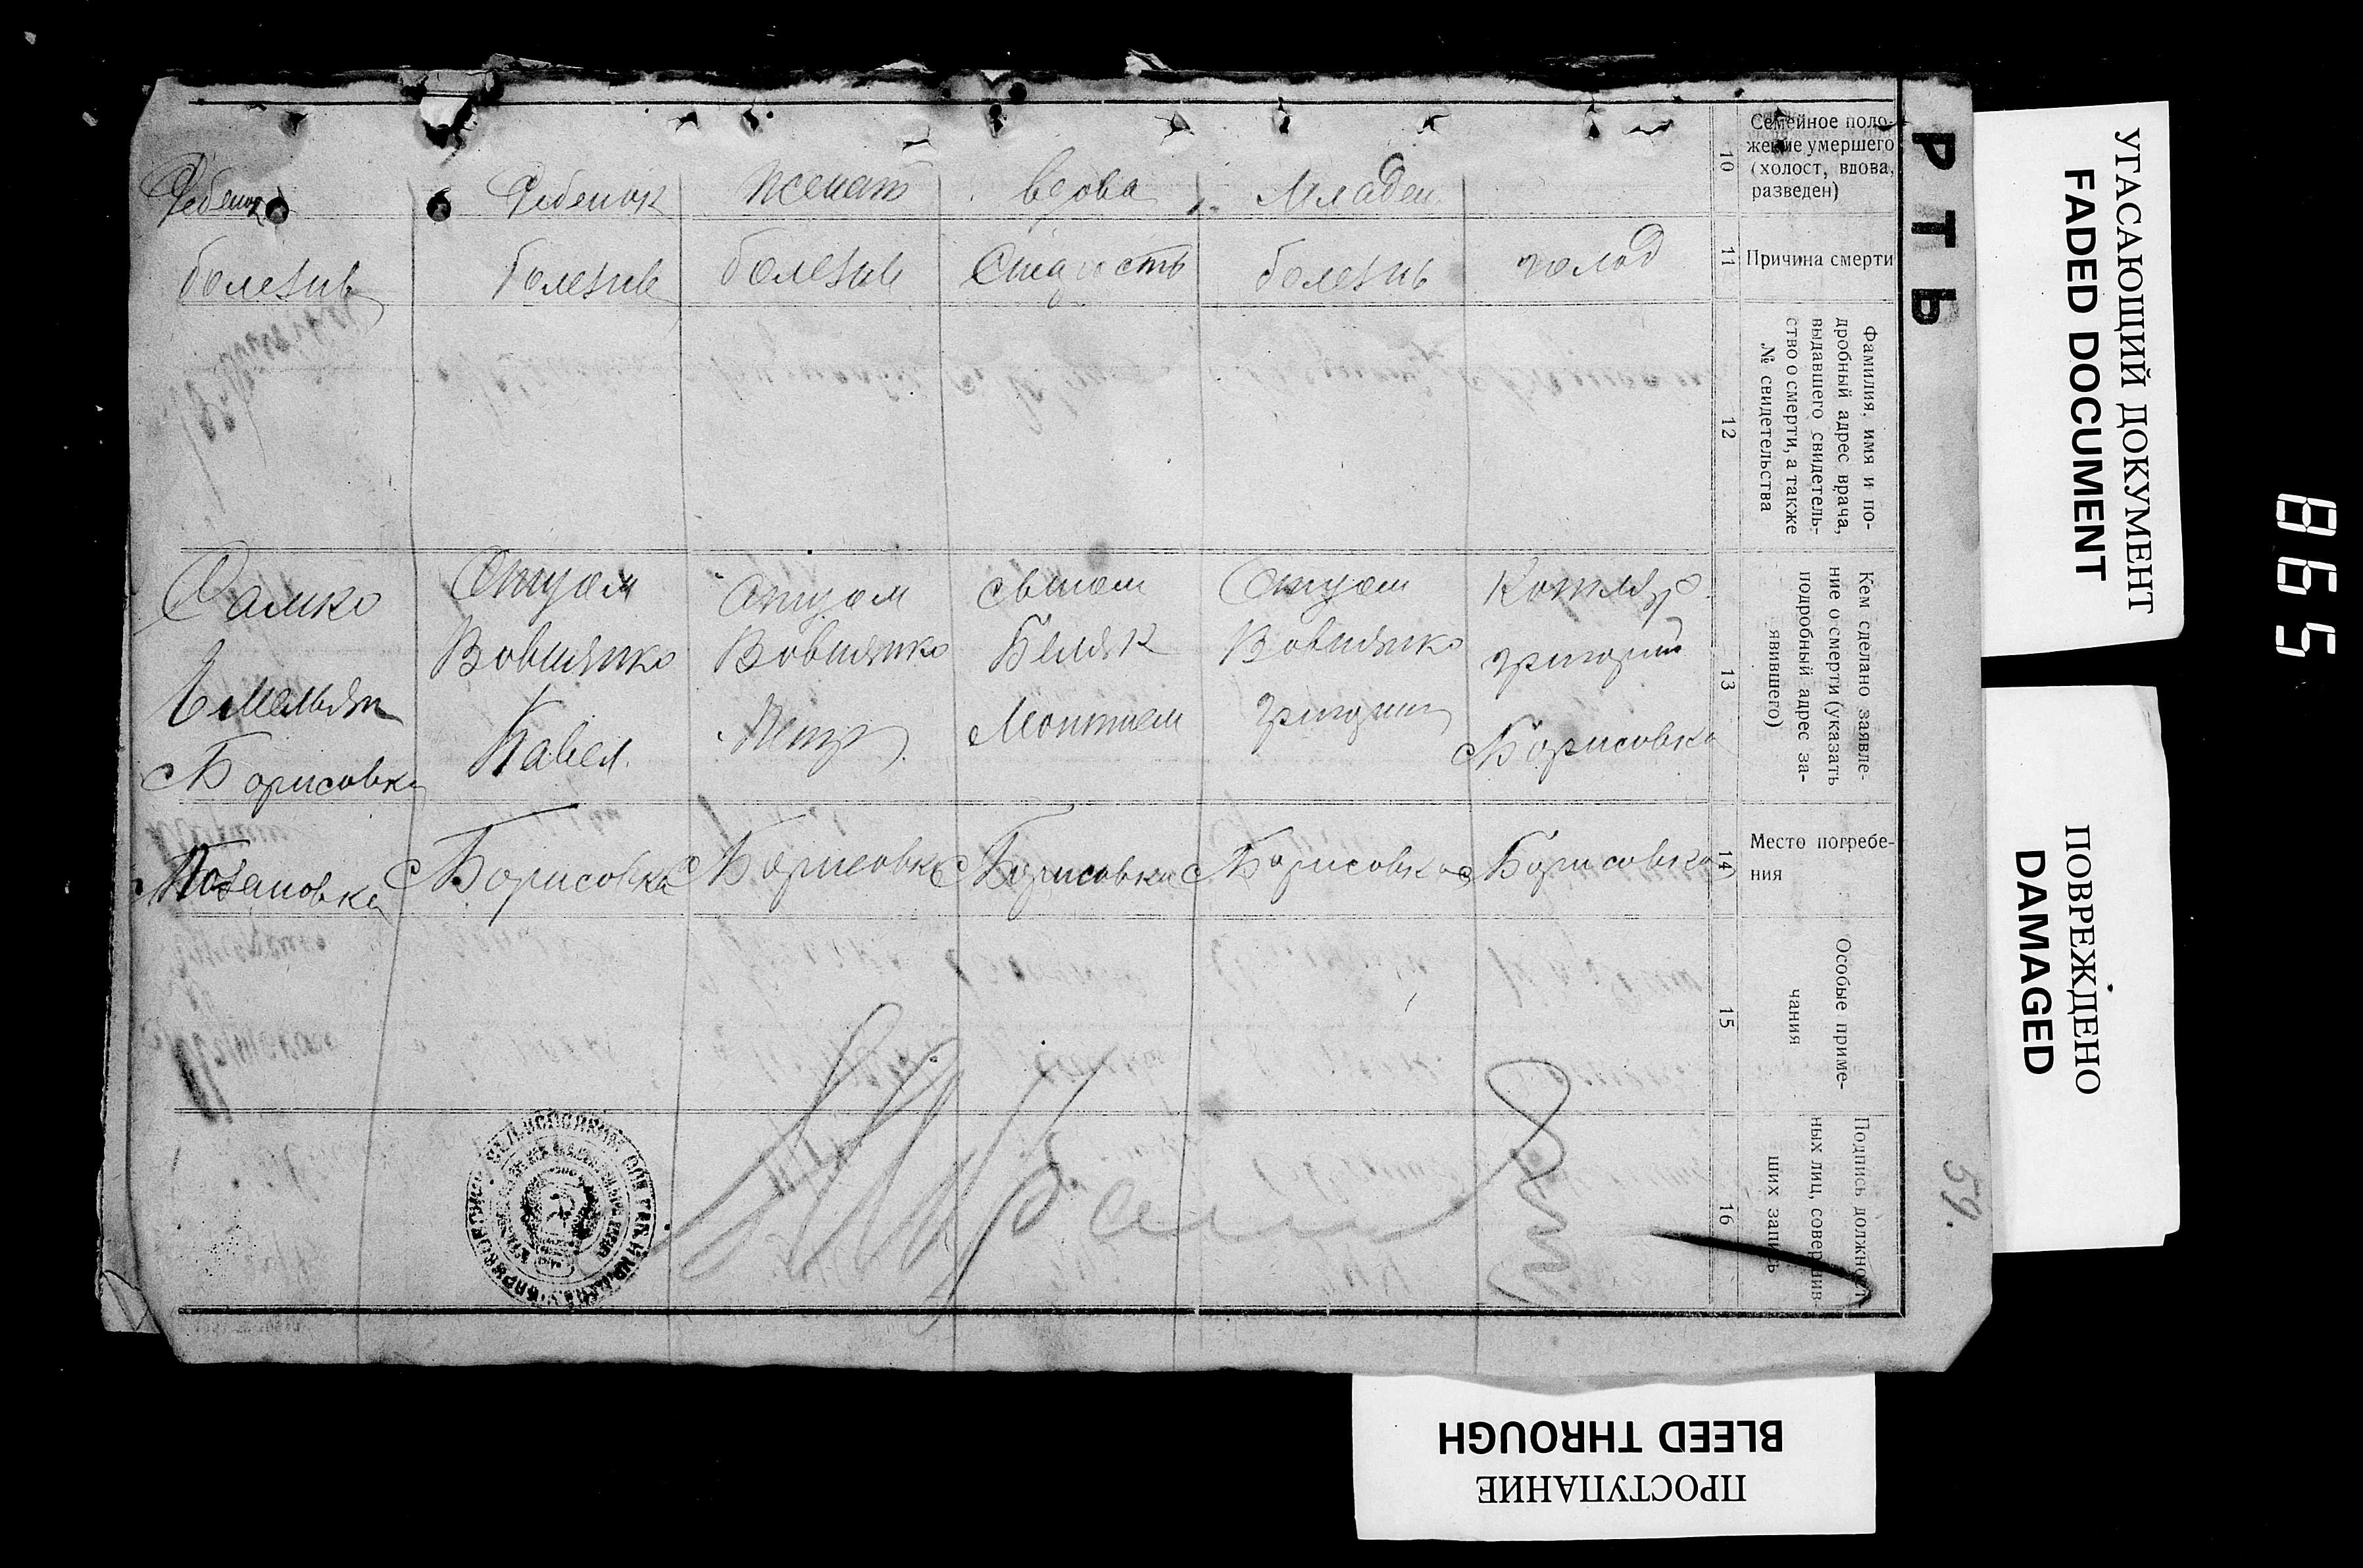 РТЬ
Семейное поло-
жение умершего
(холост, вдова,
разведен)
10
Ребенок
Ребенок
женат
вдова
Младен
Причина смерти
11
болезнь
болезнь
болезнь
Старость
болезнь
голод
Фамилия, имя и по-
дробный адрес врача,
выдавшего свидетель-
ство о смерти, а также
№ свидетельства
12
Кем сделано заявле-
ние о смерти (указать
подробный адрес за-
явившего)
13
Самко
Емельян
с Борисовка
Отцом
Вовшянко
Павел
Отцом
Вовшянко
Петр
сыном
Беляк
Отцом
Вовшянко
григорий
Котляр
григорий
с Борисовка
Место погребе-
ния
14
с Борисовка
с Борисовка
с Борисовка
с Борисовка
с Борисовка
Особые приме-
чания
15
Подпись должност-
ных лиц, совершив-
ших запись
16
59.
УГАСАЮЩИЙ ДОКУМЕНТ
FADED DOCUMENT
ПОВРЕЖДЕНО
DAMAGED
ПРОСТУПАНИЕ
BLEED THROUGH
865